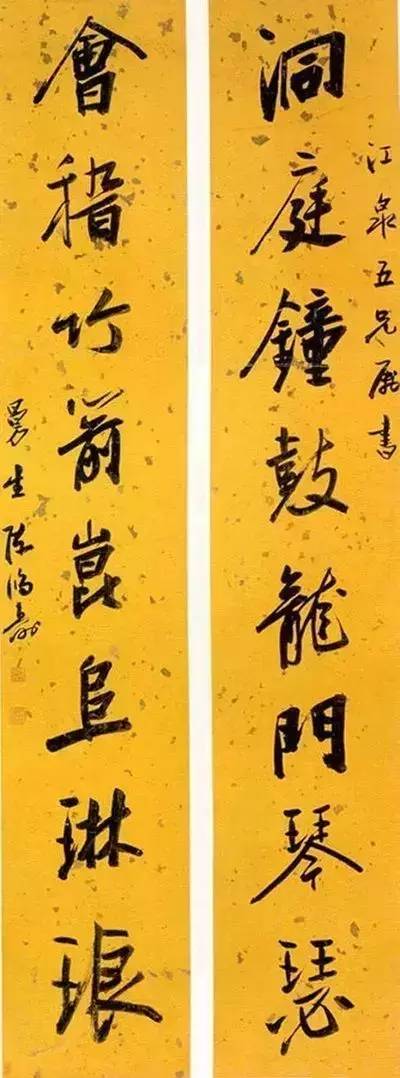 江泉五兄屬書
洞庭鐘鼓龍門琴瑟
會稽竹箭崑丘琳琅
曼生陳鴻壽